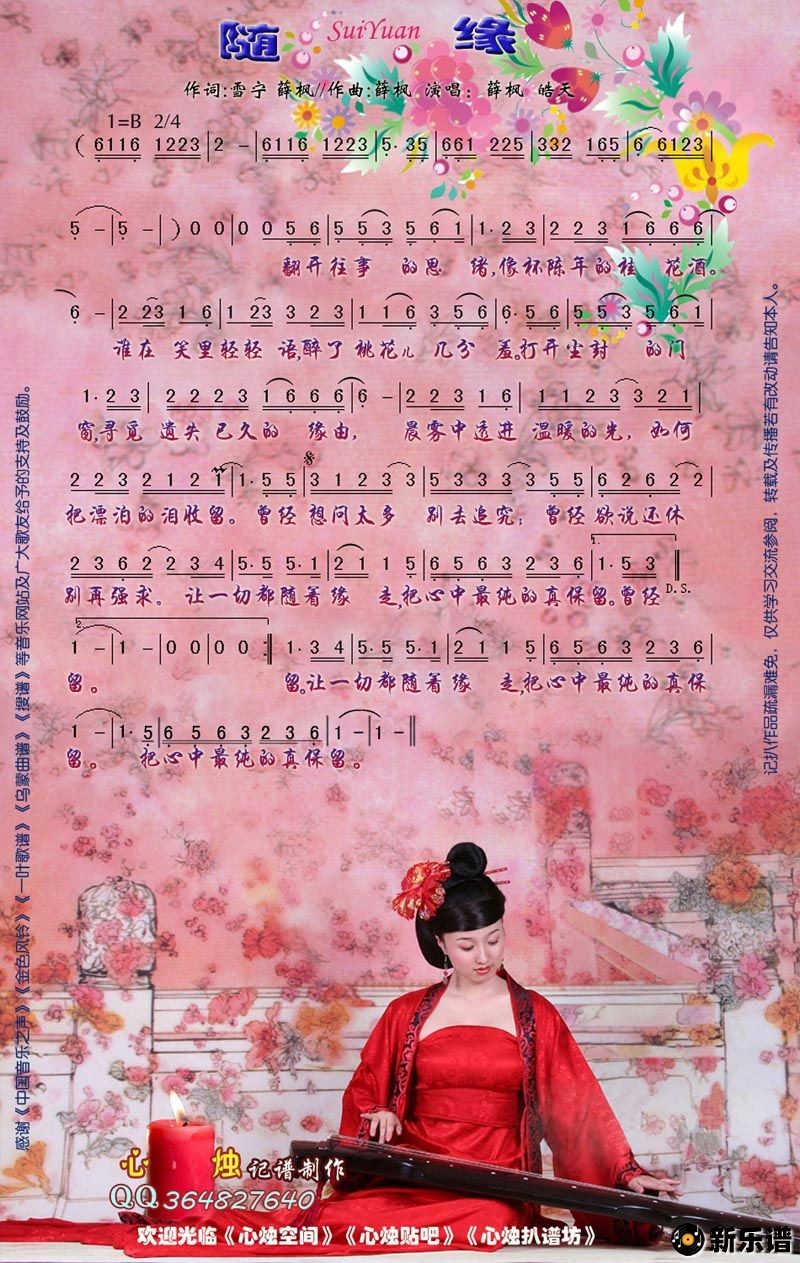 随 SuiYuan 缘
作词:雪宁 薛枫//作曲:薛枫 演唱: 薛枫 皓天
1=B 2/4
( 6116 1223 | 2 - | 6116 1223 | 5· 35 | 661 225 | 332 165 | 6 6123 |
5 - | 5 - | ) 0 0 | 0 0 5 6 | 5 5 3 5 6 1 | 1· 2 3 | 2 2 2 3 1 6 6 6 |
翻开往事 的思 绪,像杯陈年的桂 花酒。
6 - | 2 23 1 6 | 1 23 3 2 3 | 1 1 6 3 5 6 | 6· 5 6 | 5 5 3 5 6 1 |
谁在 笑里轻轻 语,醉了 桃花儿 几分 羞。打开尘封 的门
1· 2 3 | 2 2 2 3 1 6 6 6 | 6 - | 2 2 3 1 6 | 1 1 2 3 3 2 1 |
窗,寻觅 遗失 已久的 缘由, 晨雾中透进 温暖的光, 如何
2 2 3 2 1 2 1 | 1· 5 5 | 3 1 2 3 3 | 5 3 5 5 5 | 6 2 6 2 2 |
把漂泊的泪收留。曾经 想问太多 别去追究; 曾经欲说还休
2 3 6 2 2 3 4 | 5· 5 5· 1 | 2 1 1 5 | 6 5 6 3 2 3 6 | 1. 1· 5 3 ‖
别再强求。 让一切都随着缘 走,把心中最纯的真保留。曾经 D.S.
2.
1 - | 1 - | 0 0 | 0 0 :‖ 1· 3 4 | 5· 5 5 1· | 2 1 1 5 | 6 5 6 3 2 3 6 |
留。 留。让一切都随着缘 走,把心中最纯的真保
1 - | 1· 5 | 6 5 6 3 2 3 6 | 1 - | 1 - ‖
留。 把心中最纯的真保留。
感谢《中国音乐之声》《金色风铃》《一叶歌谱》《乌蒙曲谱》《搜谱》等音乐网站及广大歌友给予的支持及鼓励。
记扒作品疏漏难免，仅供学习交流参阅，转载及传播若有改动请告知本人。
心 烛 记谱制作
QQ 364827640
欢迎光临《心烛空间》《心烛贴吧》《心烛扒谱坊》
新乐谱